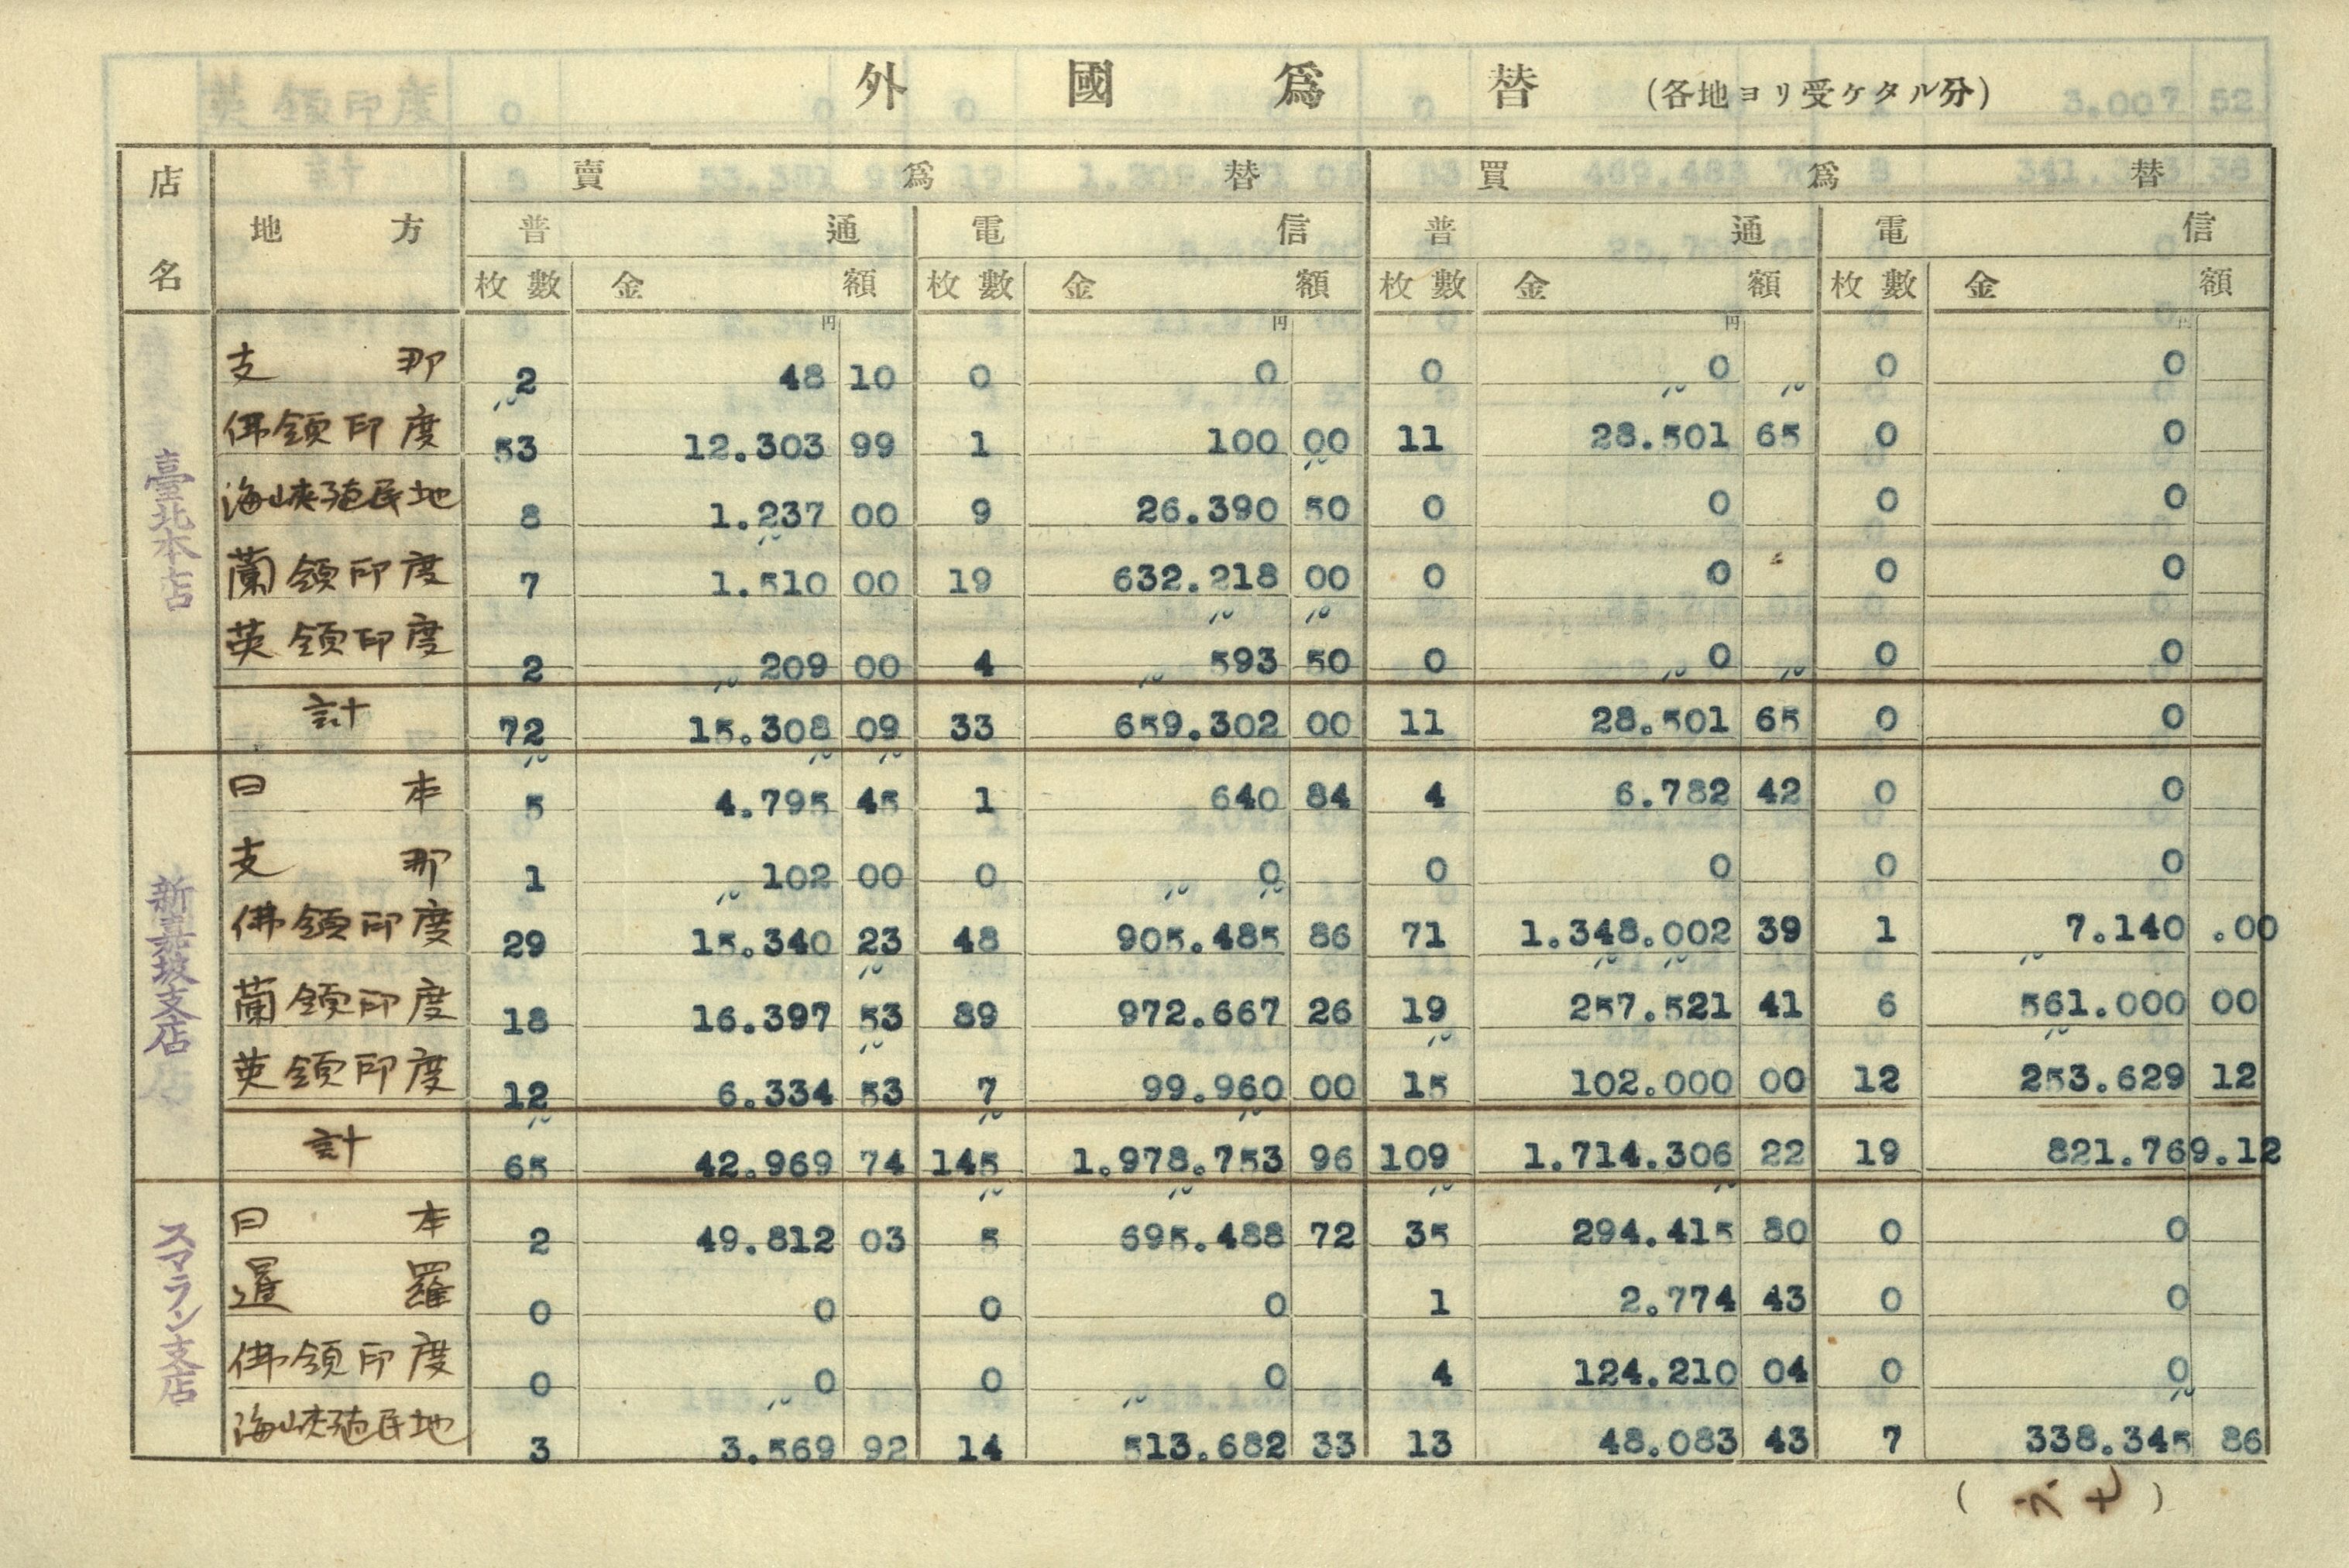 外國爲替 (各地ヨリ受ケタル分)
店名 地方 賣爲替 買爲替
普通 電信 普通 電信
枚數 金額 枚數 金額 枚數 金額 枚數 金額
円 円 円 円
臺北本店
支那 2 48 10 0 0 0 0 0 0
佛領印度 53 12.303 99 1 100 00 11 28.501 65 0 0
海峽殖民地 8 1.237 00 9 26.390 50 0 0 0 0
蘭領印度 7 1.510 00 19 632.218 00 0 0 0 0
英領印度 2 209 00 4 593 50 0 0 0 0
計 72 15.308 09 33 659.302 00 11 28.501 65 0 0
新嘉坡支店
日本 5 4.795 45 1 640 84 4 6.782 42 0 0
支那 1 102 00 0 0 0 0 0 0
佛領印度 29 15.340 23 48 905.485 86 71 1.348.002 39 1 7.140 .00
蘭領印度 18 16.397 53 89 972.667 26 19 257.521 41 6 561.000 00
英領印度 12 6.334 53 7 99.960 00 15 102.000 00 12 253.629 12
計 65 42.969 74 145 1.978.753 96 109 1.714.306 22 19 821.769.12
スマラン支店
日本 2 49.812 03 5 695.488 72 35 294.415 80 0 0
暹羅 0 0 0 0 1 2.774 43 0 0
佛領印度 0 0 0 0 4 124.210 04 0 0
海峽殖民地 3 3.569 92 14 513.682 33 13 48.083 43 7 338.345 86
(六七)